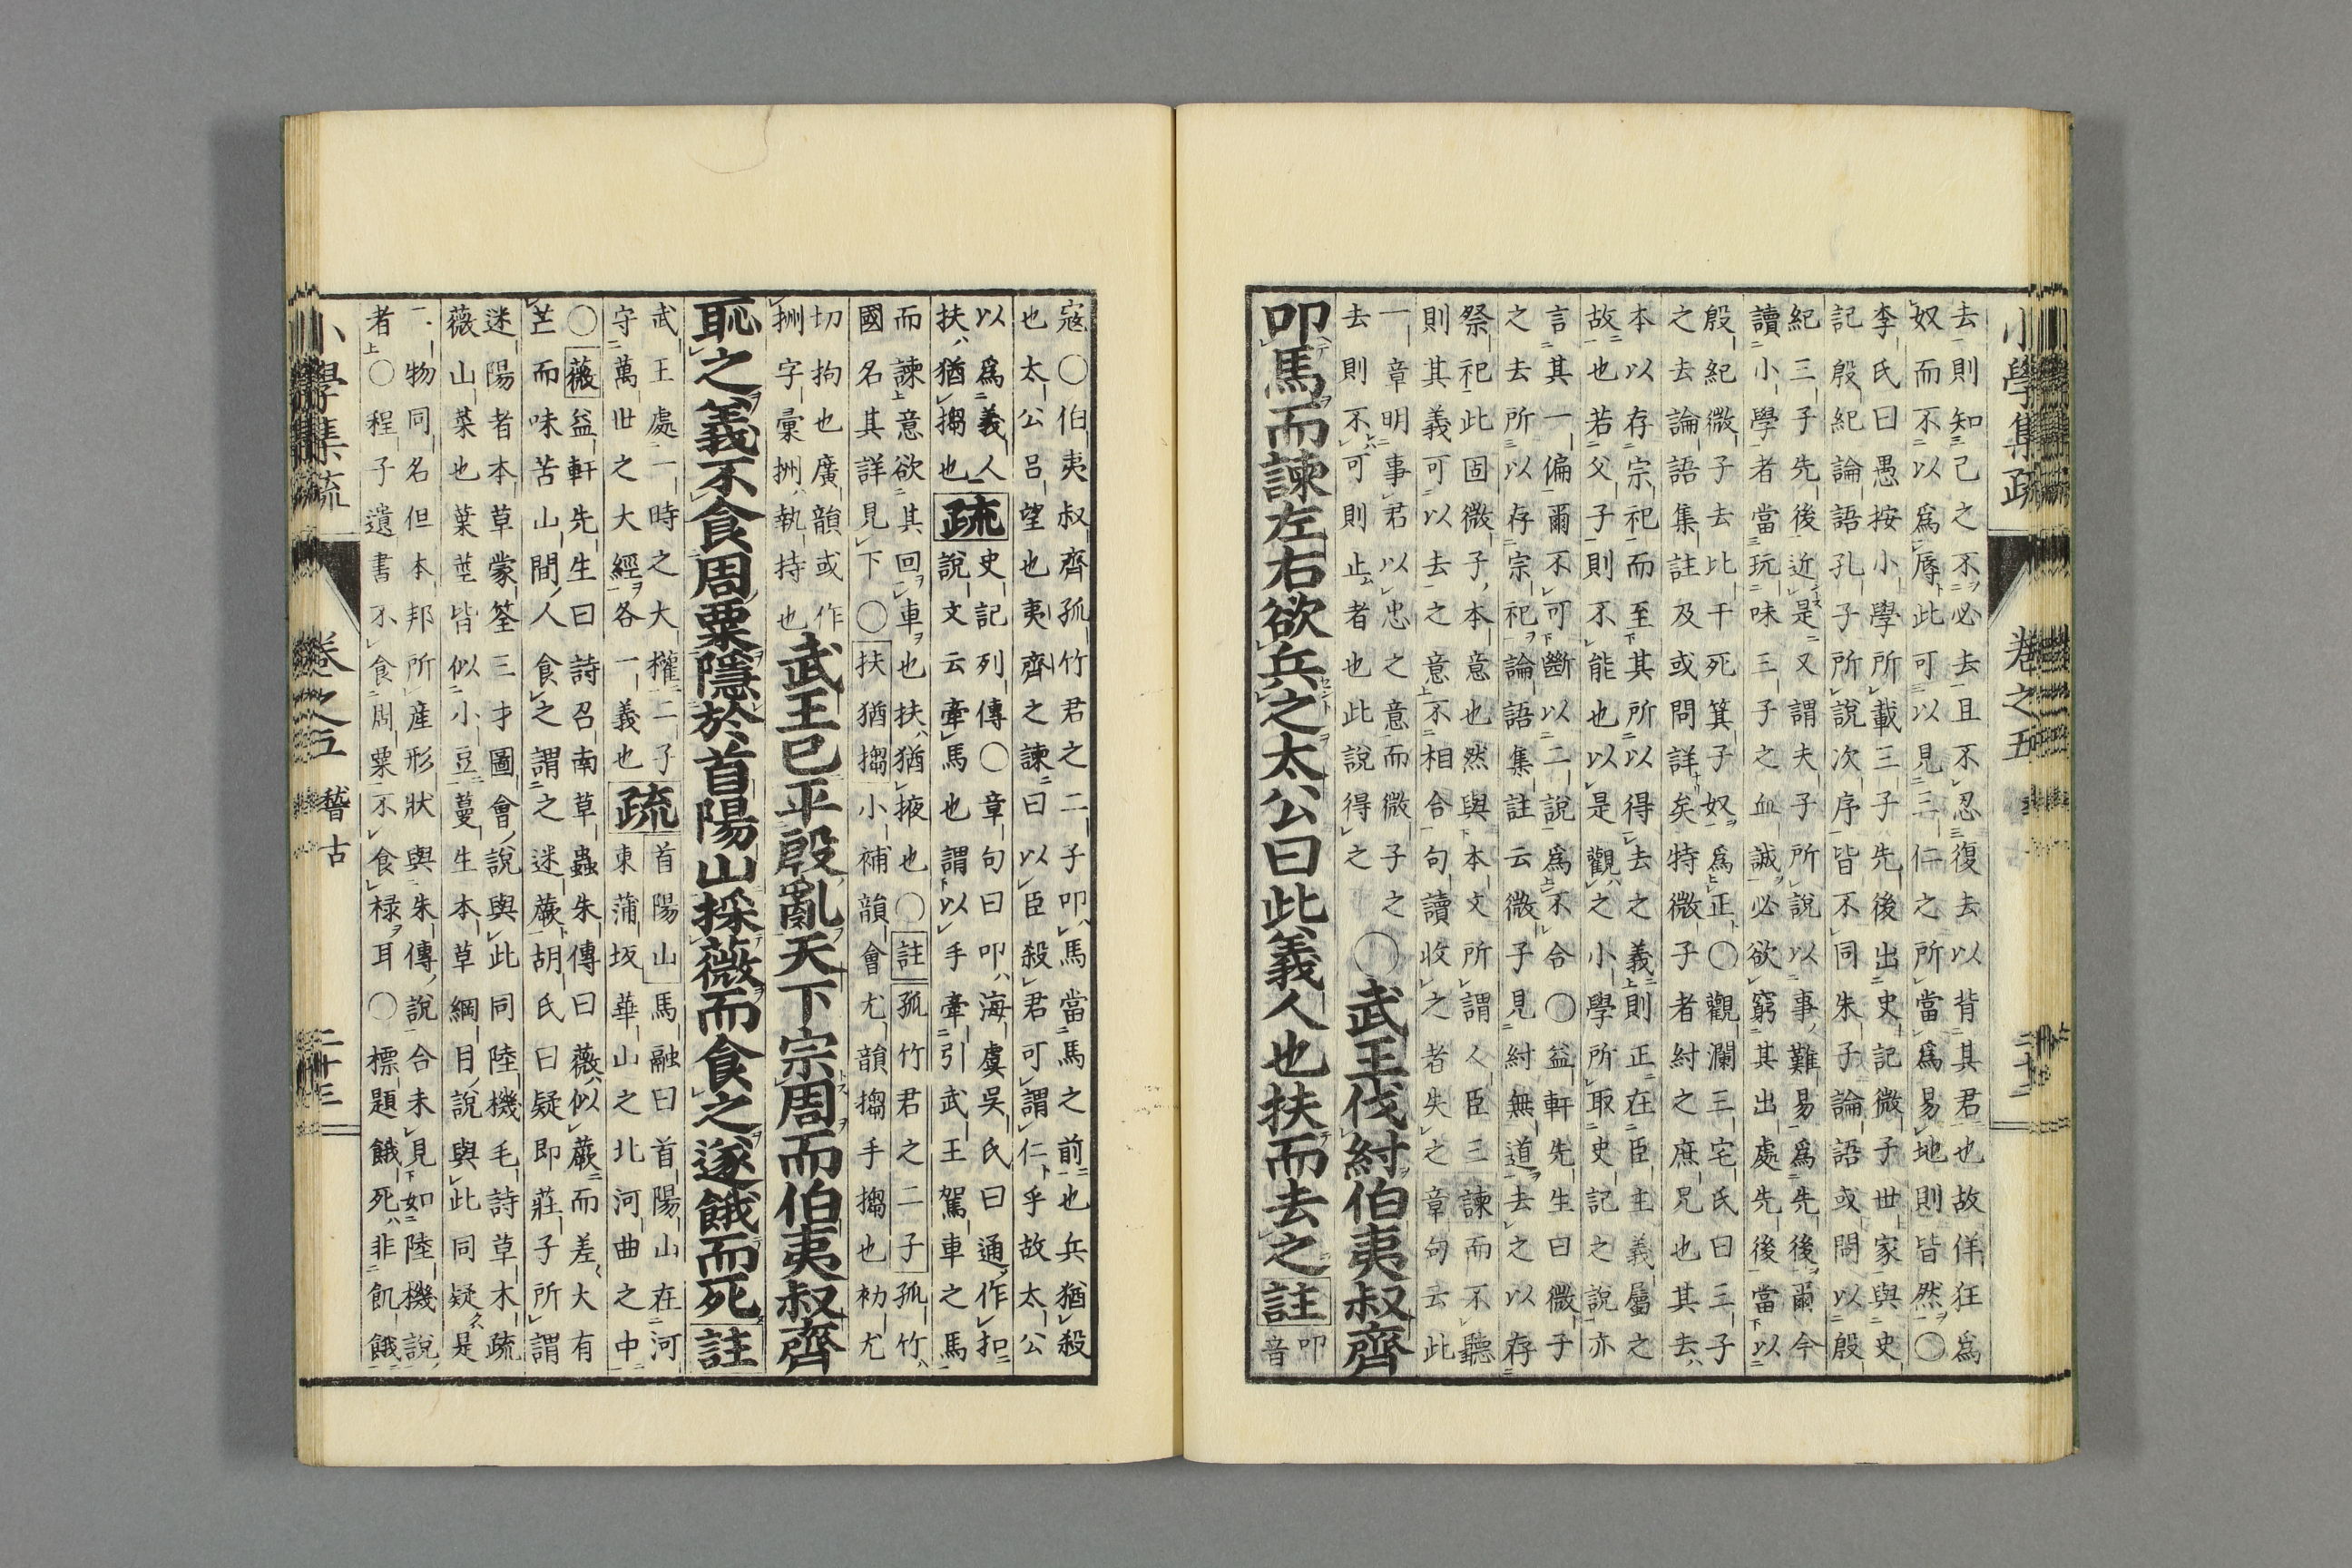 小學集疏 卷之五 二十二
去則知己之不必去且不忍復去以背其君也故佯狂爲
奴而不以爲辱此可以見三仁之所當爲易地則皆然〇
李氏曰愚按小學所載三子先後出史記微子世家與史
記殷紀論語孔子所說次序皆不同朱子論語或問以殷
紀三子先後近是又謂夫子所說以事難易爲先後爾今
讀小學者當玩味三子之血誠必欲窮其出處先後當以
殷紀微子去比干死箕子奴爲正〇觀瀾三宅氏曰三子
之去論語集註及或問詳矣特微子者紂之庶兄也其去
本以存宗祀而至其所以得去之義則正在臣主義屬之
故也若父子則不能也以是觀之小學所取史記之說亦
言其一偏爾不可斷以二說爲不合〇益軒先生曰微子
之去所以存宗祀論語集註云微子見紂無道去之以存
祭祀此固微子本意也然與本文所謂人臣三諫而不聽
則其義可以去之意不相合句讀收之者失之章句云此
一章明事君以忠之意而微子之
去則不可則止者也此說得之
〇武王伐紂伯夷叔齊
叩馬而諫左右欲兵之太公曰此義人也扶而去之註
叩
音
寇〇伯夷叔齊孤竹君之二子叩馬當馬之前也兵猶殺
也太公呂望也夷齊之諫曰以臣殺君可謂仁乎故太公
以爲義人
扶猶搊也
疏
史記列傳〇章句曰叩海虞吳氏曰通作扣
說文云牽馬也謂以手牽引武王駕車之馬
而諫意欲其回車也扶猶掖也〇註孤竹君之二子孤竹
國名其詳見下〇扶猶搊小補韻會尤韻搊手搊也初尤
切拘也廣韻或作
捌字彙捌執持也
武王已平殷亂天下宗周而伯夷叔齊
恥之義不食周粟隱於首陽山採薇而食之遂餓而死註
武王處一時之大權二子
守萬世之大經各一義也
疏
首陽山馬融曰首陽山在河
東蒲坂華山之北河曲之中
〇薇益軒先生曰詩召南草蟲朱傳曰薇似蕨而差大有
芒而味苦山間人食之謂之迷蕨胡氏曰疑即莊子所謂
迷陽者本草蒙筌三才圖會說與此同陸機毛詩草木疏
薇山菜也葉莖皆似小豆蔓生本草綱目說與此同疑是
一物同名但本邦所產形狀與朱傳說合未見如陸機說
者〇程子遺書不食周粟不食祿耳〇標題餓死非飢餓
小學集疏 卷之五 稽古 二十三